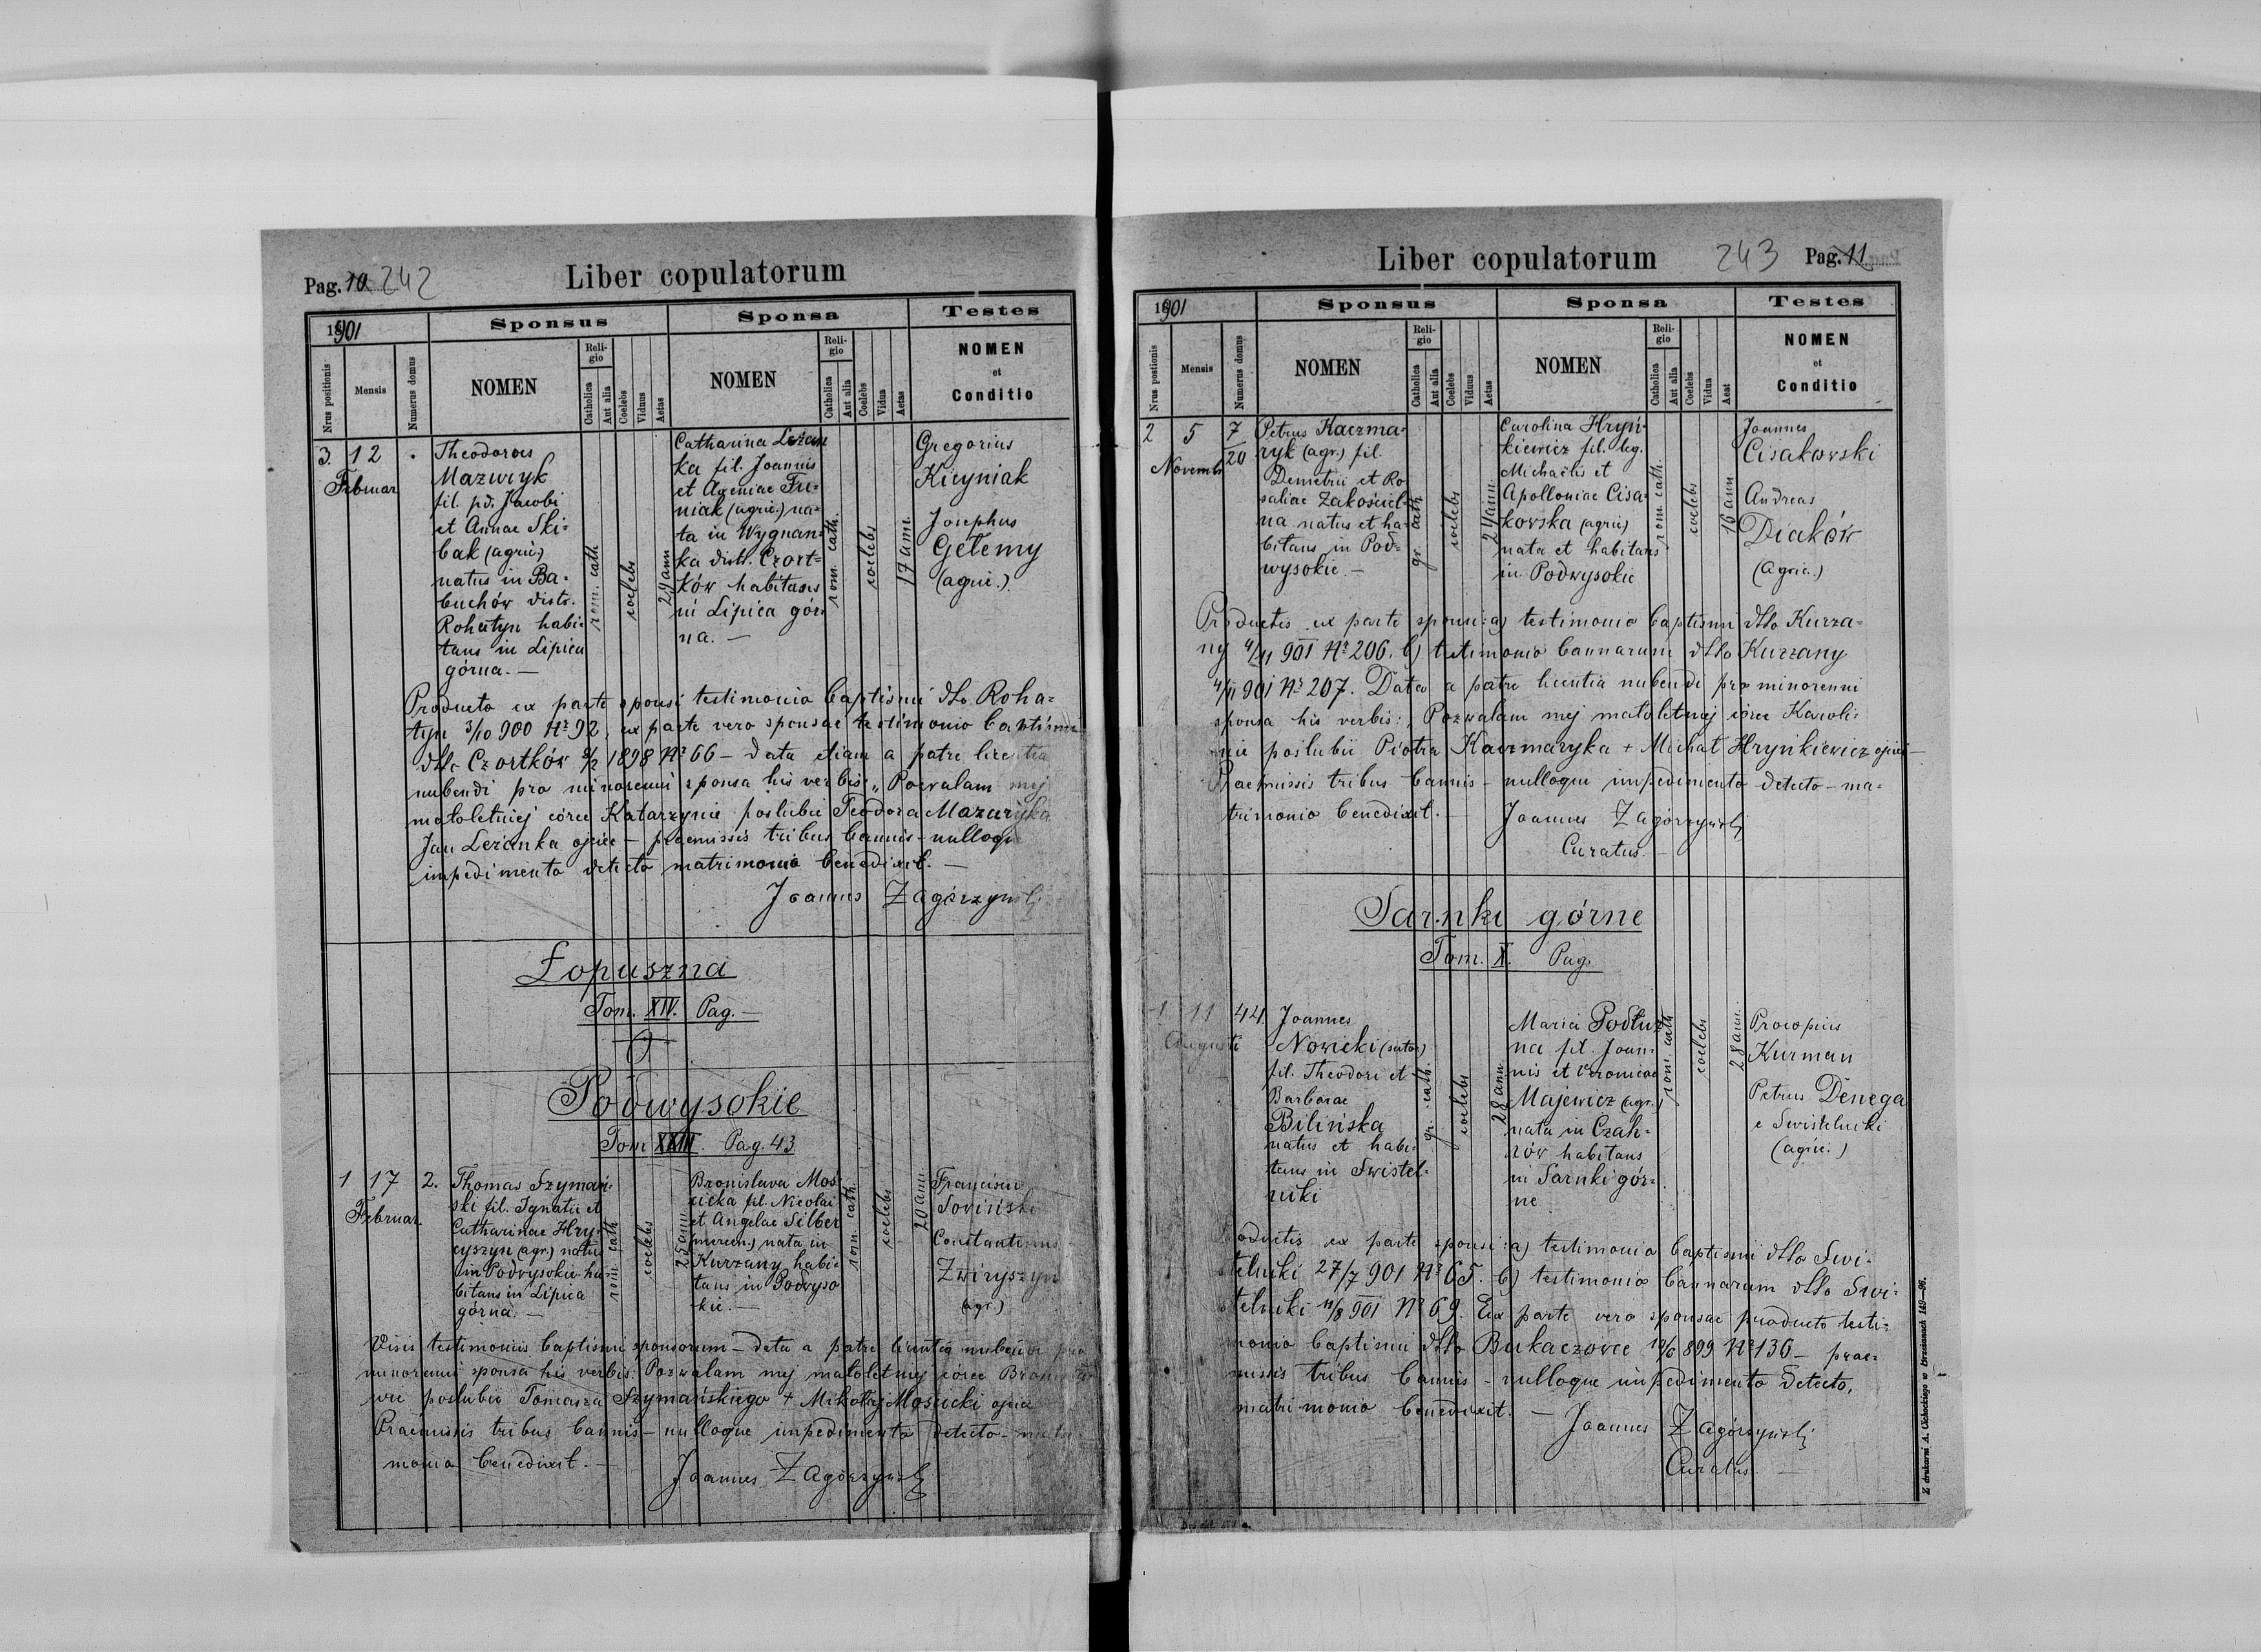 Pag. 10 242
Liber copulatorum
1901
Sponsus
Sponsa
Testes
Nrus positionis
Mensis
Numerus domus
NOMEN
Religio
Catholica
Aut alia
Coelebs
Viduus
Aetas
NOMEN
Religio
Catholica
Aut alia
Coelebs
Vidua
Aetas
NOMEN
et
Conditio
3. 12
Februar
Theodorus
Mazuryk
fil. pd. Jacobi
et Annae Ski-
bak (agric.)
natus in Ba-
buchów distr.
Rohatyn habi-
tans in Lipica
górna. —
rom. cath
coelebs
29 ann
Catharina Leżan
ka fil. Joannis
et Axeniae Fu-
niak (agric.) na-
ta in Wygnan-
ka distr. Czort-
ków habitans
in Lipica gór-
na. —
rom. cath.
coelebs
17 ann.
Gregorius
Kicyniak
Josephus
Getemy
(agric.)
Producto ex parte sponsi testimonio baptismi dtto Roha-
tyn 3/10 900 Nº 92, ex parte vero sponsae testimonio baptismi
dtto Czortków 1898 Nº 66 – data etiam a patre licentia
nubendi pro minorenni sponsa his verbis: „Pozwalam mej
małoletniej córce Katarzynie poślubić Teodora Mazuryka
Jan Leżanka ojciec – praemissis tribus bannis – nulloque
impedimento detecto matrimonio benedixit. —
Joannes Zagórzyński
Łopuszna
Tom. XIV. Pag. —
Podwysokie
Tom XXIII. Pag. 43
1 17 2.
Februar
Thomas Szymań-
ski fil. Ignatii et
Catharinae Hry-
cyszyn (agr.) natus
in Podwysokie ha-
bitans in Lipica
górna. —
rom. cath
coelebs
25 ann.
Bronislava Moś-
cicka fil. Nicolai
et Angelae Silber
(mercen.) nata in
Kurzany habi-
tans in Podwyso
kie. —
rom. cath.
coelebs
20 ann.
Franciscus
Soviński
Constantinus
Zwiryszyn
(agr.)
Visis testimoniis baptismi sponsorum – data a patre licentia nubendi pro
minorenni sponsa his verbis: Pozwalam mej małoletniej córce
poślubić Tomasza Szymańskiego + Mikołaj Mościcki ojciec
Praemissis tribus bannis – nulloque impedimento detecto –
monio benedixit. —
Joannes Zagórzyński
Liber copulatorum
243 Pag. 11
1901
Sponsus
Sponsa
Testes
Nrus postionis
Mensis
Numerus domus
NOMEN
Religio
Catholica
Aut alia
Coelebs
Viduus
Aetas
NOMEN
Religio
Catholica
Aut alia
Coelebs
Vidua
Aeat
NOMEN
et
Conditio
2 5 7/20
Novembr
Petrus Kaczma-
ryk (agr.) fil.
Demetrii et Ro
saliae Zakościel-
na natus et ha-
bitans in Pod-
wysokie. —
gr. cath
coelebs
24 ann.
Carolina Hryń-
kiewicz fil. leg.
Michaëlis et
Apolloniae Cisa-
kovska (agric)
nata et habitans
in Podwysokie
rom. cath.
coelebs
16 ann
Joannes
Cisakovski
Andreas
Diaków
(agric.)
Productis ex parte sponsi: a) testimonio baptismi dtto Kurza-
ny 4/11 901 Nº 206. b) testimonio bannarum dtto Kurzany
4/11 901 Nº 207. Data a patre licentia nubendi pro minorenni
sponsa his verbis: Pozwalam mej małoletniej córce Karoli-
nie poślubić Piotra Kaczmaryka + Michał Hryńkiewicz ojciec —
Praemissis tribus bannis – nulloque impedimento detecto – ma-
trimonio benedixit. —
Joannes Zagórzyński
Curatus. —
Sarnki górne
Tom. X. Pag.
1 11 44.
Augusti
Joannes
Nowicki (sutor)
fil. Theodori et
Barbarae
Bilińska
natus et habi-
tans in Swistel-
niki
gr. cath.
coelebs
28 ann
Maria Podłuż
na fil. Joan-
nis et Veronicae
Majewicz (agr.)
nata in Czah-
rów habitans
in Sarnki gór-
ne
rom. cath
coelebs
28 ann.
Procopius
Kurman
Petrus Denega
e Swistelniki
(agric.)
Productis ex parte sponsi: a) testimonio baptismi dtto Swi-
stelniki 27/7 901 Nº 65. b) testimonio bannarum dtto Swi-
stelniki 11/8 901 Nº 69. Ex parte vero sponsae producto testi-
monio baptismi dtto Bukaczowce 899 Nº 136 – prae-
missis tribus bannis – nulloque impedimento detecto,
matrimonio benedixit. —
Joannes Zagórzyński
Curatus. —
Z drukarni A. Cichockiego w Brzeżanach 149–96.